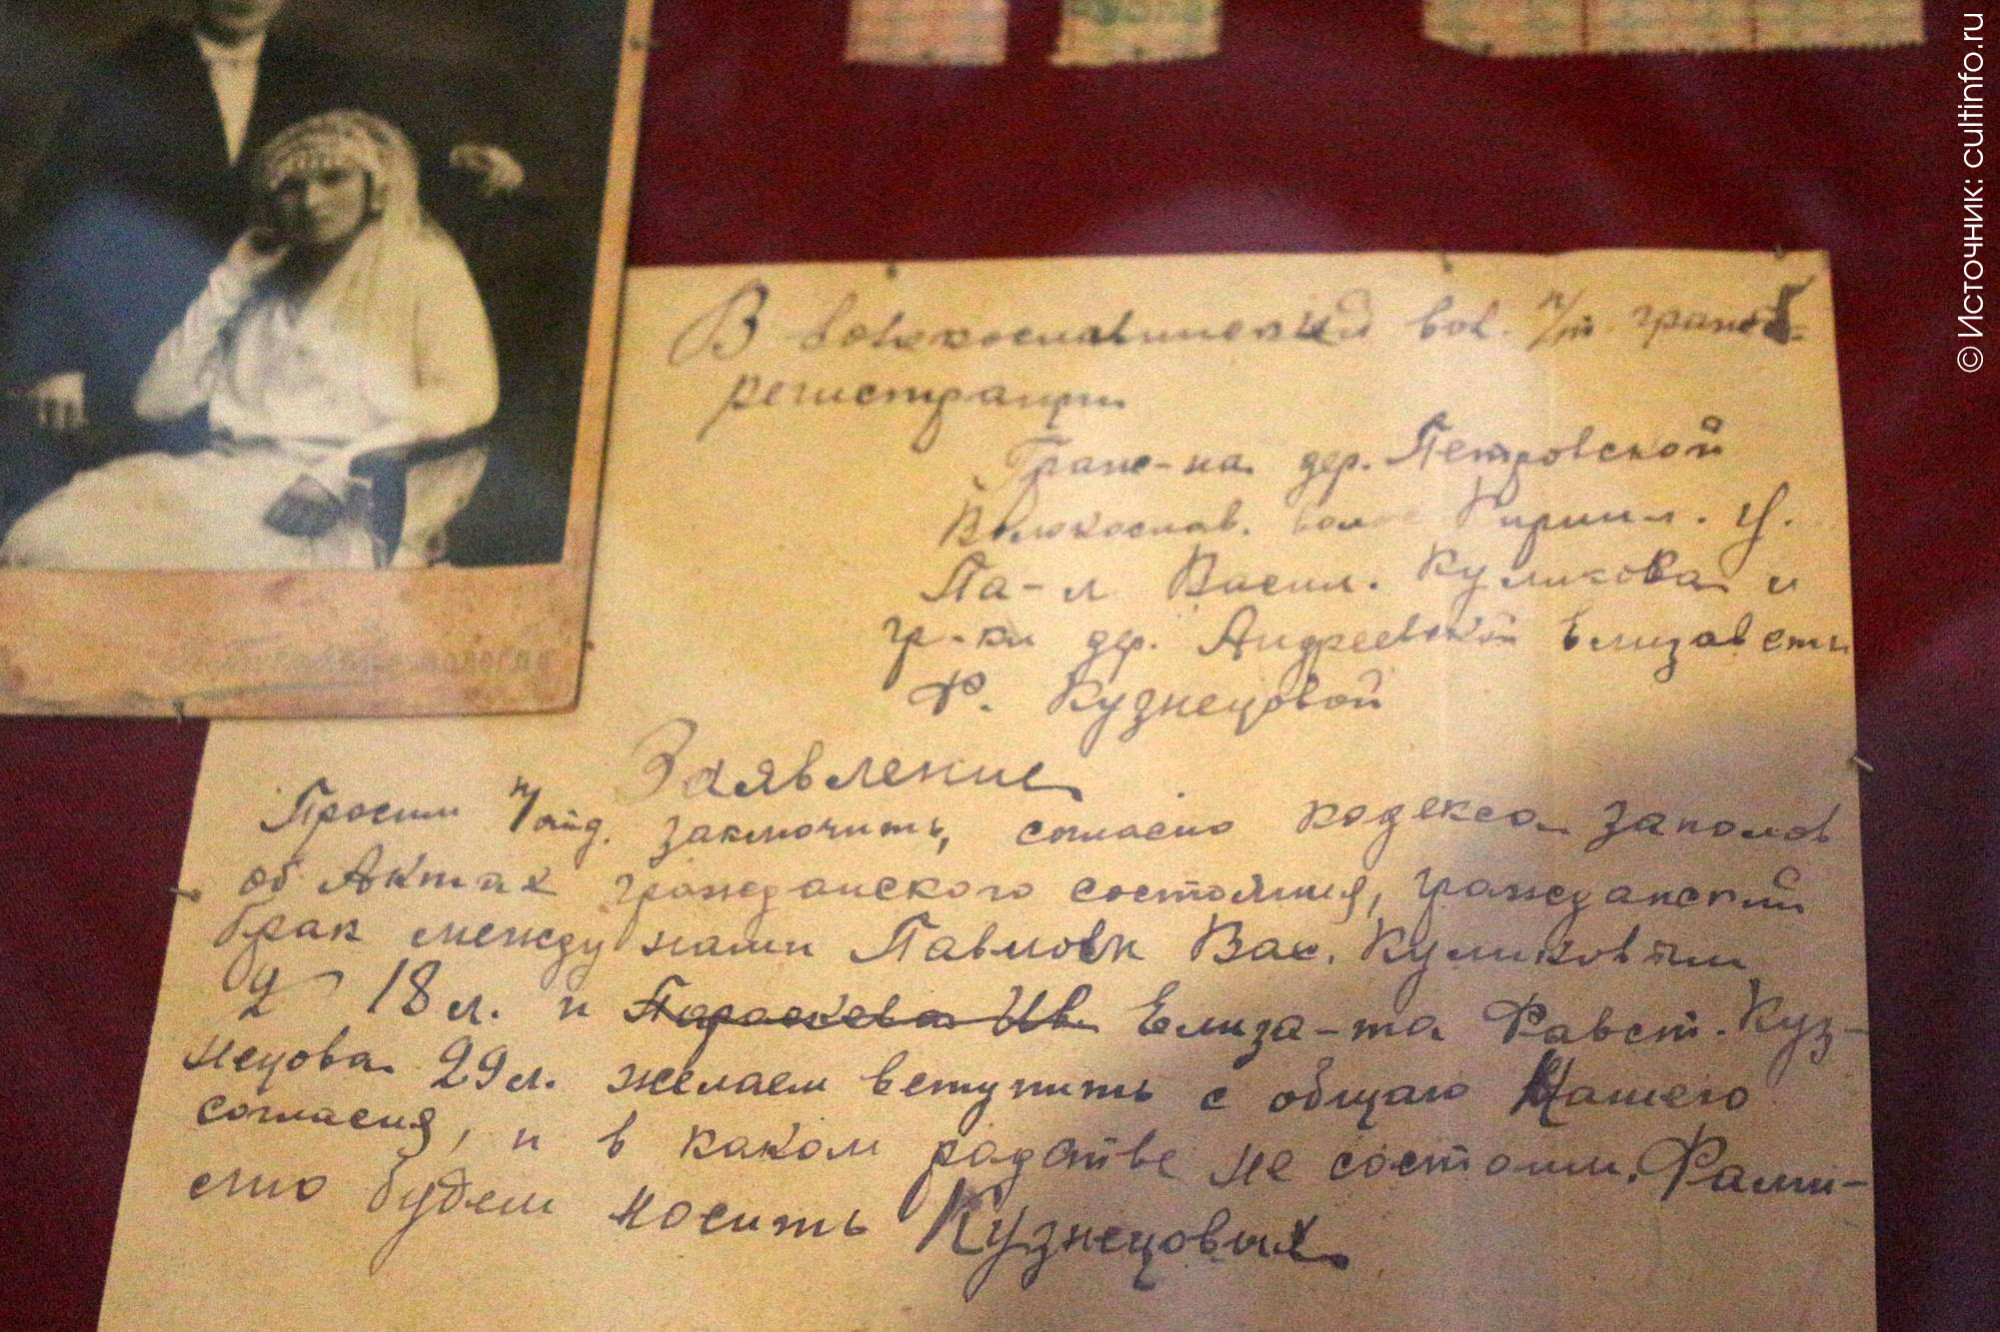 В волокославинский вол. п/т. граж.
регистрации
Граж-на дер. Петровской
Волокослав. волос Кирилл. у.
Па-л Васил. Куликова и
гр-ки дер. Андреевской Елизаветы
Ф. Кузнецовой
Заявление
Просим п/отд. заключить, согласно кодекса законов
об Актах гражданского состояния, гражданский
брак между нами Павлом Вас. Куликовым
18 л. и Параскева Ив. Елиза-та Фавст. Куз-
нецова 29 л. желаем вступить с общаго Нашего
согласия, и в каком родстве не состоим. Фами-
лию будем носить Кузнецовых
© Источник: cultinfo.ru